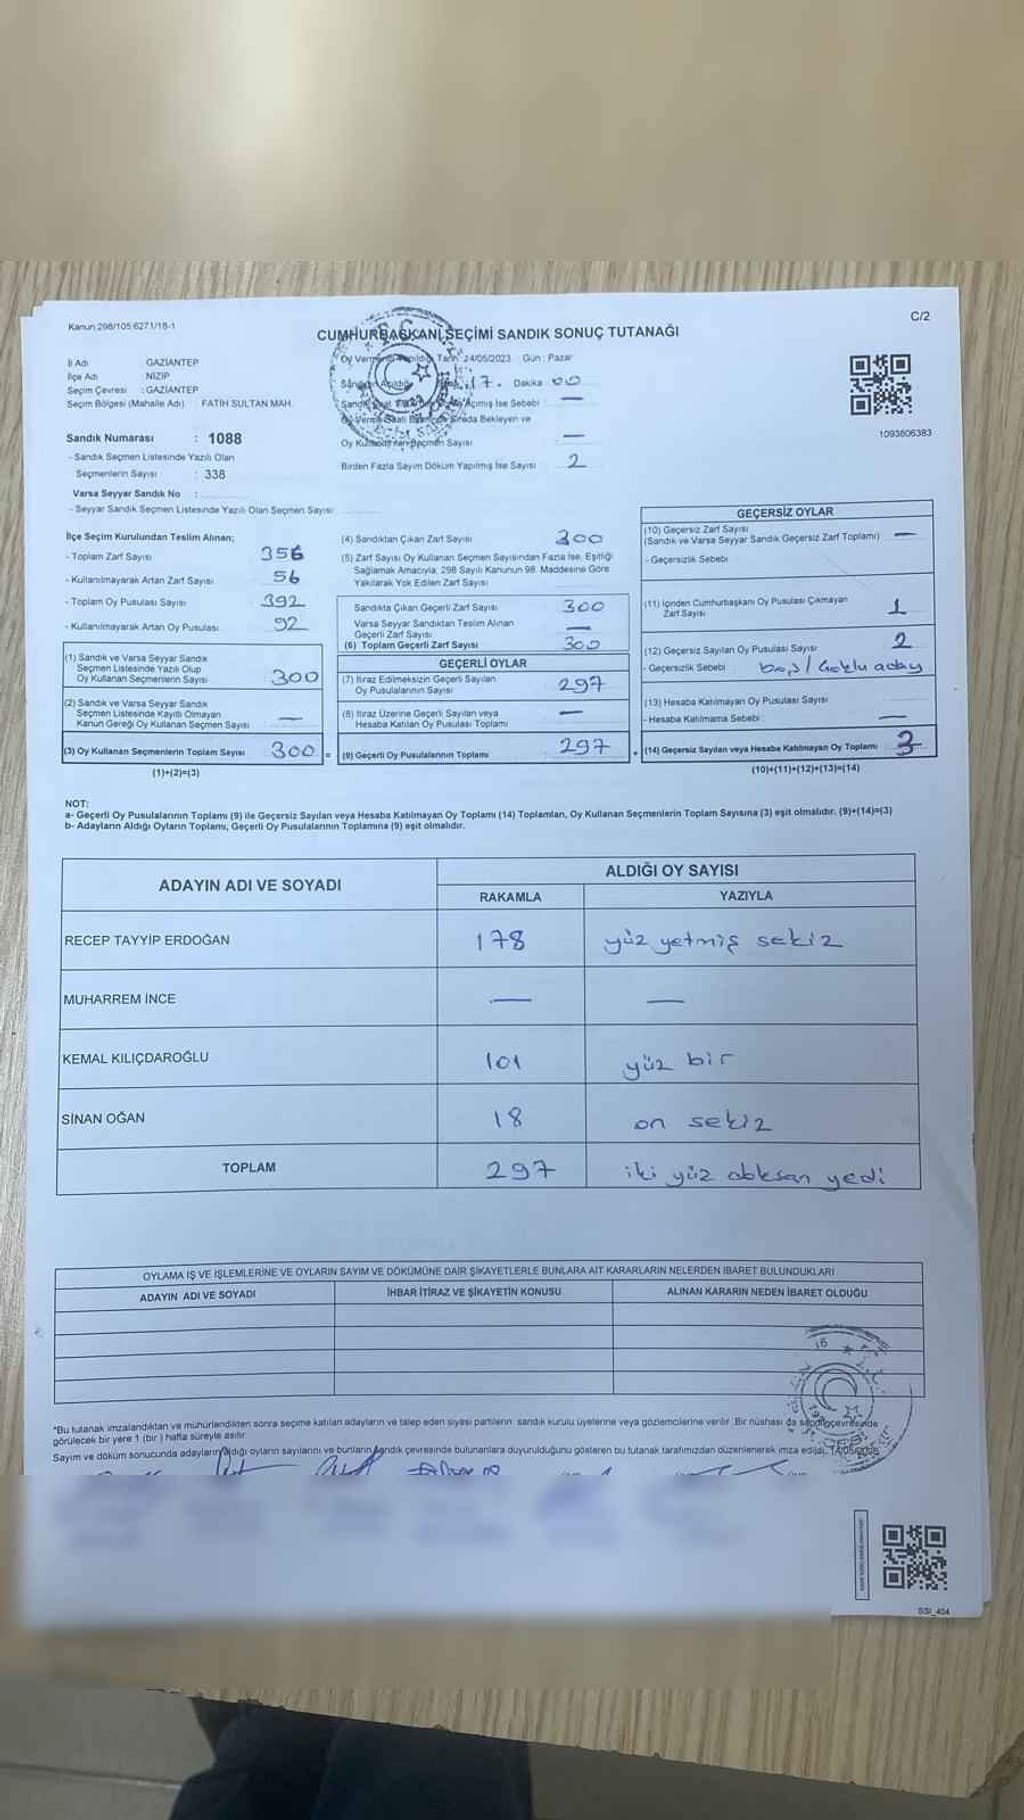 Kanun:298/105 6271/18-1
C/2
CUMHURBAŞKANI SEÇİMİ SANDIK SONUÇ TUTANAĞI
İl Adı GAZİANTEP
İlçe Adı NİZİP
Seçim Çevresi : GAZİANTEP
Seçim Bölgesi (Mahalle Adı) FATİH SULTAN MAH.
Sandık Numarası : 1088
- Sandık Seçmen Listesinde Yazılı Olan
Seçmenlerin Sayısı : 338
Varsa Seyyar Sandık No :
- Seyyar Sandık Seçmen Listesinde Yazılı Olan Seçmen Sayısı
Tarih 14/05/2023 Gün : Pazar
17. Dakika 00
Açmış İse Sebebi —
Sırada Bekleyen ve
Oy Kullandırılan Seçmen Sayısı —
Birden Fazla Sayım Döküm Yapılmış İse Sayısı 2
1093806383
İlçe Seçim Kurulundan Teslim Alınan;
- Toplam Zarf Sayısı 356
- Kullanılmayarak Artan Zarf Sayısı 56
- Toplam Oy Pusulası Sayısı 392
- Kullanılmayarak Artan Oy Pusulası 92
(1) Sandık ve Varsa Seyyar Sandık
Seçmen Listesinde Yazılı Olup
Oy Kullanan Seçmenlerin Sayısı 300
(2) Sandık ve Varsa Seyyar Sandık
Seçmen Listesinde Kayıtlı Olmayan
Kanun Gereği Oy Kullanan Seçmen Sayısı —
(3) Oy Kullanan Seçmenlerin Toplam Sayısı 300 =
(1)+(2)=(3)
(4) Sandıktan Çıkan Zarf Sayısı 300
(5) Zarf Sayısı Oy Kullanan Seçmen Sayısından Fazla İse, Eşitliği
Sağlamak Amacıyla; 298 Sayılı Kanunun 98. Maddesine Göre
Yakılarak Yok Edilen Zarf Sayısı
Sandıkta Çıkan Geçerli Zarf Sayısı 300
Varsa Seyyar Sandıktan Teslim Alınan
Geçerli Zarf Sayısı —
(6) Toplam Geçerli Zarf Sayısı 300
GEÇERLİ OYLAR
(7) İtiraz Edilmeksizin Geçerli Sayılan
Oy Pusulalarının Sayısı 297
(8) İtiraz Üzerine Geçerli Sayılan veya
Hesaba Katılan Oy Pusulası Toplamı —
(9) Geçerli Oy Pusulalarının Toplamı 297 +
GEÇERSİZ OYLAR
(10) Geçersiz Zarf Sayısı
(Sandık ve Varsa Seyyar Sandık Geçersiz Zarf Toplamı) —
- Geçersizlik Sebebi
(11) İçinden Cumhurbaşkanı Oy Pusulası Çıkmayan
Zarf Sayısı 1
(12) Geçersiz Sayılan Oy Pusulası Sayısı 2
- Geçersizlik Sebebi boş/Çoklu aday
(13) Hesaba Katılmayan Oy Pusulası Sayısı
- Hesaba Katılmama Sebebi —
(14) Geçersiz Sayılan veya Hesaba Katılmayan Oy Toplamı 3
(10)+(11)+(12)+(13)=(14)
NOT:
a- Geçerli Oy Pusulalarının Toplamı (9) ile Geçersiz Sayılan veya Hesaba Katılmayan Oy Toplamı (14) Toplamları, Oy Kullanan Seçmenlerin Toplam Sayısına (3) eşit olmalıdır. (9)+(14)=(3)
b- Adayların Aldığı Oyların Toplamı, Geçerli Oy Pusulalarının Toplamına (9) eşit olmalıdır.
ADAYIN ADI VE SOYADI ALDIĞI OY SAYISI
RAKAMLA YAZIYLA
RECEP TAYYİP ERDOĞAN 178 yüz yetmiş sekiz
MUHARREM İNCE — —
KEMAL KILIÇDAROĞLU 101 yüz bir
SİNAN OĞAN 18 on sekiz
TOPLAM 297 iki yüz doksan yedi
OYLAMA İŞ VE İŞLEMLERİNE VE OYLARIN SAYIM VE DÖKÜMÜNE DAİR ŞİKAYETLERLE BUNLARA AİT KARARLARIN NELERDEN İBARET BULUNDUKLARI
ADAYIN ADI VE SOYADI İHBAR İTİRAZ VE ŞİKAYETİN KONUSU ALINAN KARARIN NEDEN İBARET OLDUĞU
*Bu tutanak imzalandıktan ve mühürlendikten sonra seçime katılan adayların ve talep eden siyasi partilerin sandık kurulu üyelerine veya gözlemcilerine verilir. Bir nüshası da sandık çevresinde
görülecek bir yere 1 (bir) hafta süreyle asılır.
Sayım ve döküm sonucunda adayların aldığı oyların sayılarını ve bunların sandık çevresinde bulunanlara duyurulduğunu gösteren bu tutanak tarafımızdan düzenlenerek imza edildi. 14/05/2023
SSI_454